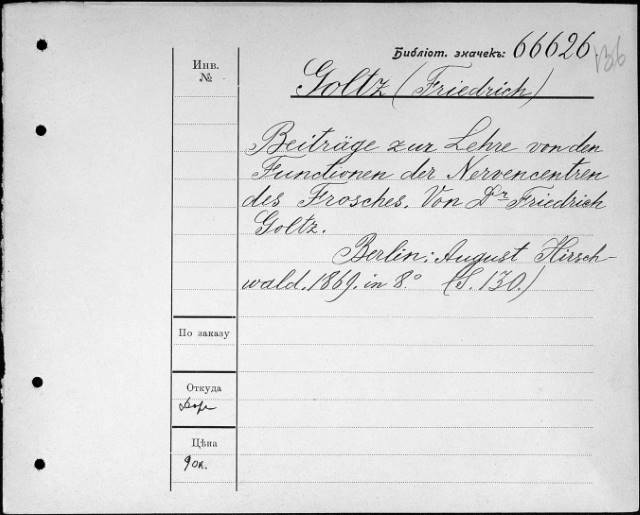 Библіот. значекъ: 66626
Инв.
№
Goltz (Friedrich)
Beiträge zur Lehre von den
Functionen der Nervencentren
des Frosches. Von Dr Friedrich
Goltz.
Berlin: August Hirsch-
wald. 1869. in 8.° (S. 130.)
По заказу
Откуда
Цѣна